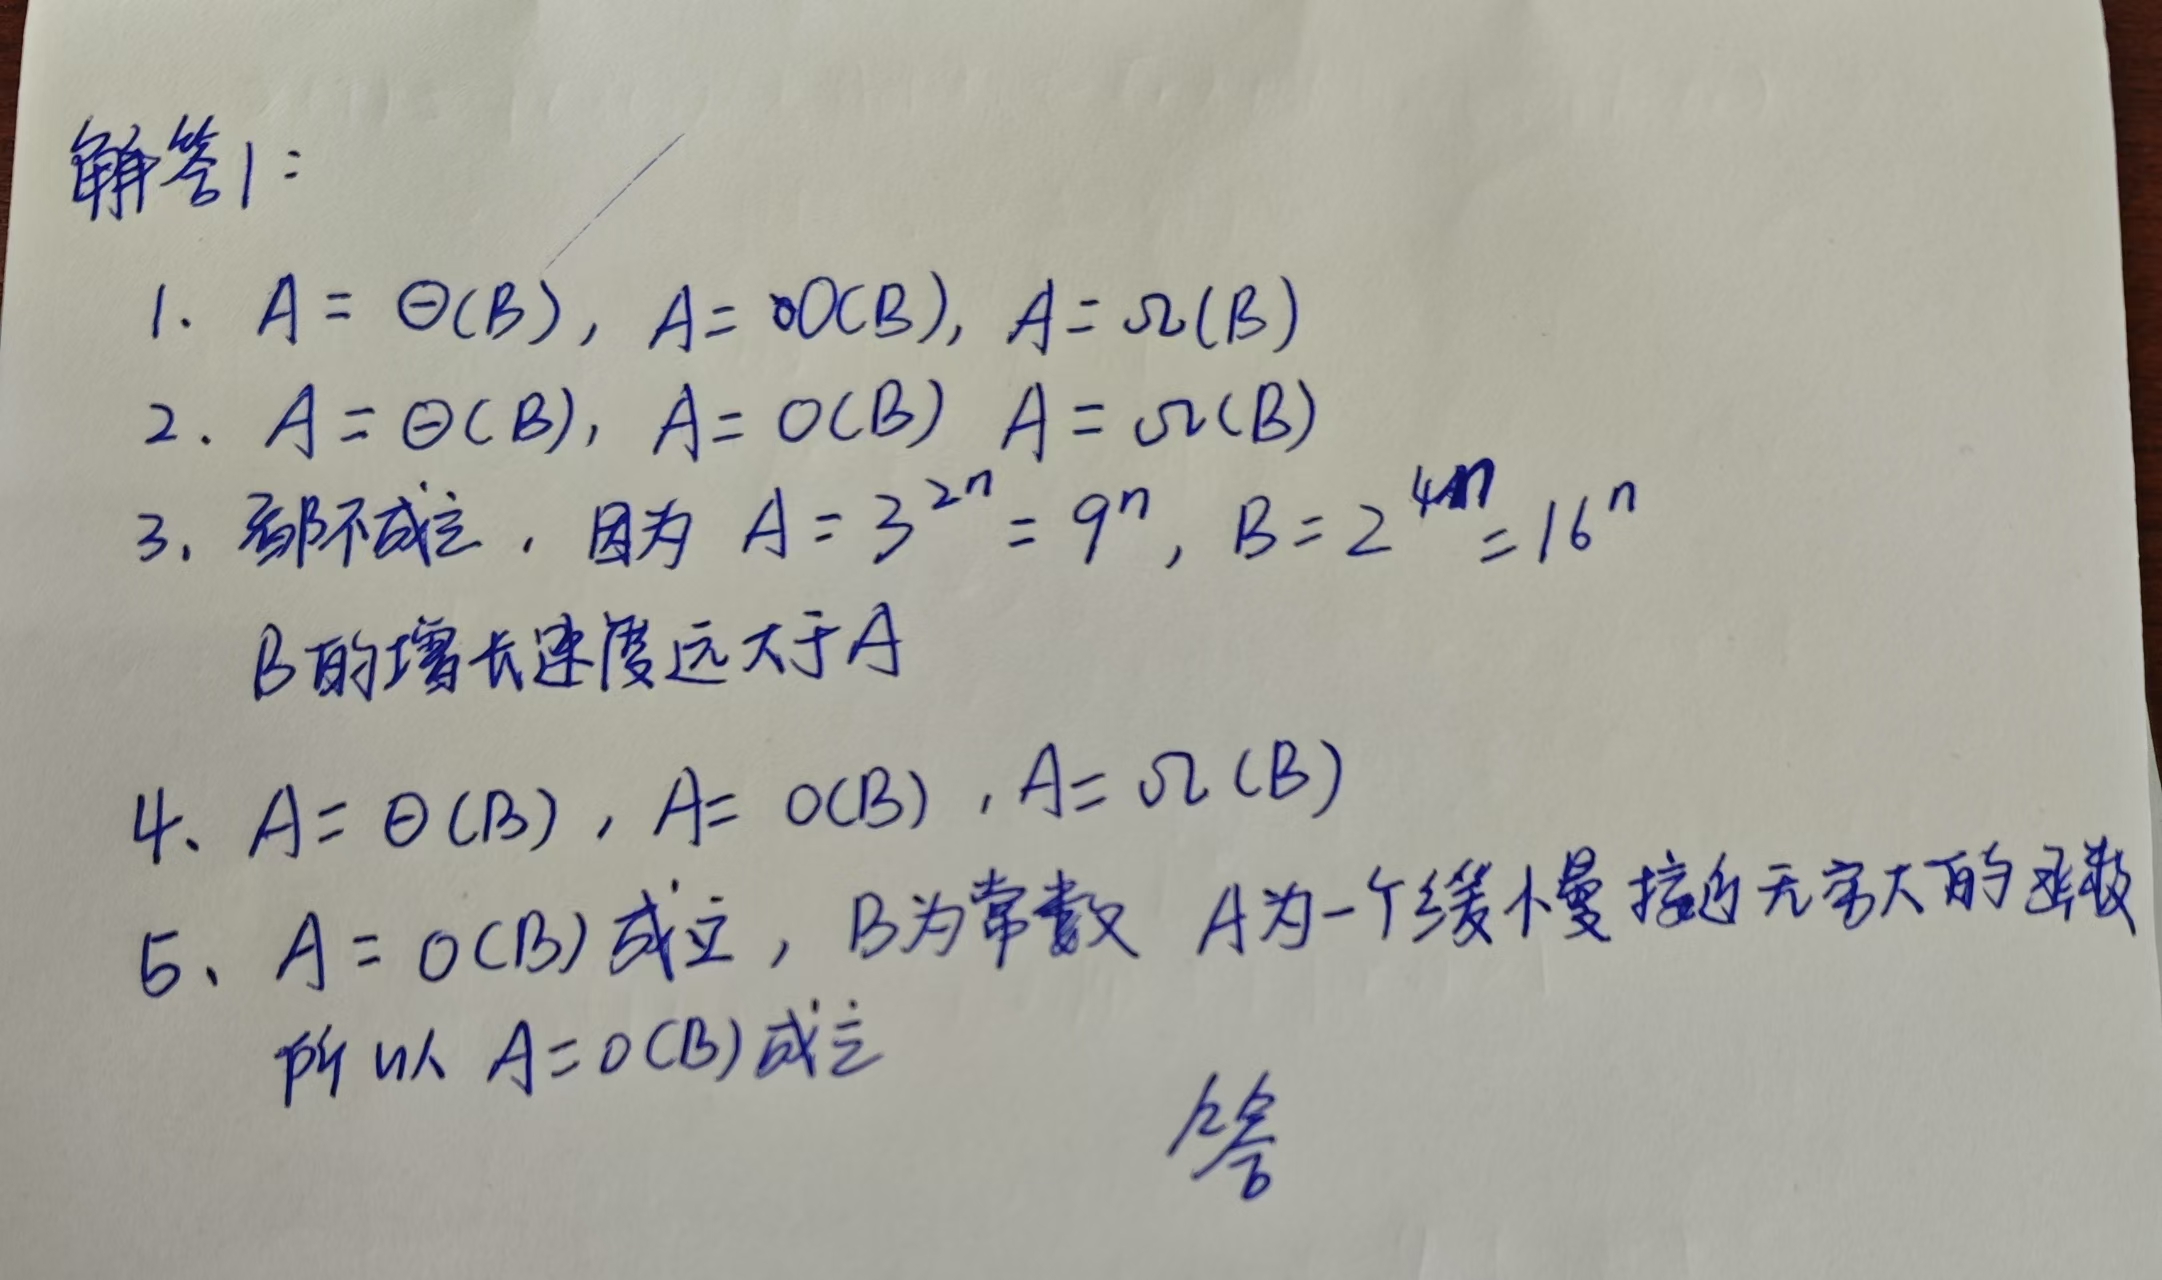 解答1:
1. A = Θ(B), A = O(B), A = Ω(B)
2. A = Θ(B), A = O(B) A = Ω(B)
3. 都不成立, 因为 A = 3^{2n} = 9^n, B = 2^{4n} = 16^n
B的增长速度远大于A
4、A = Θ(B), A = O(B), A = Ω(B)
5、A = O(B) 成立, B为常数 A为一个缓慢接近无穷大的函数
所以 A = O(B) 成立
答